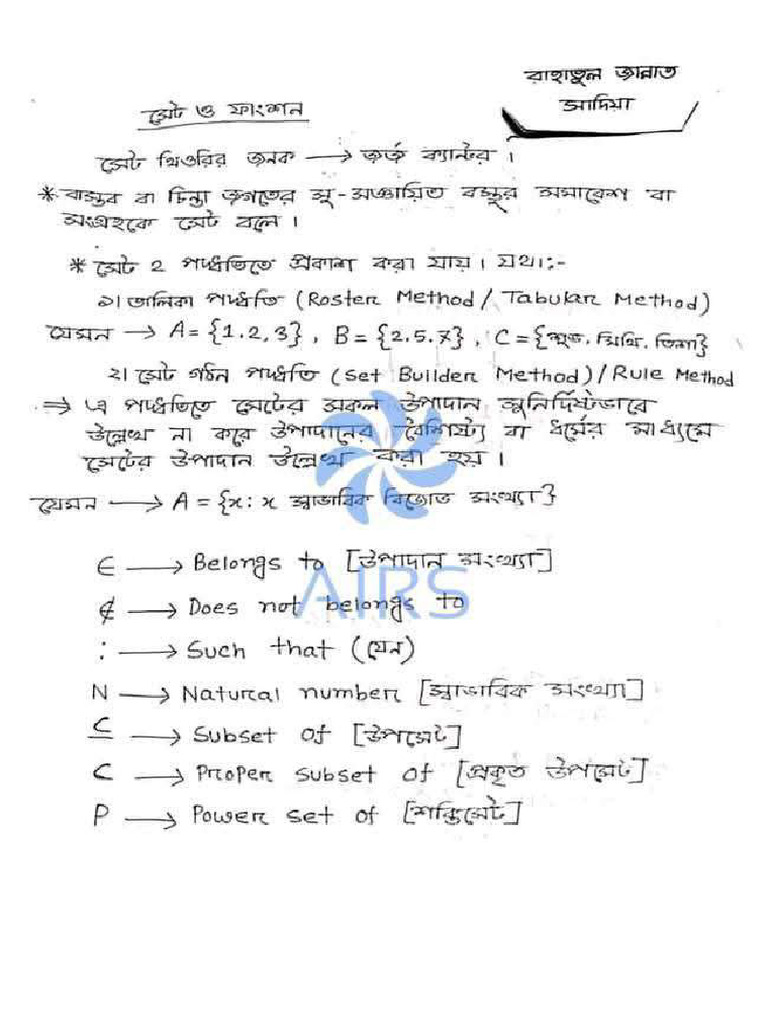 রাহাতুল জান্নাত
সাদিয়া
সেট ও ফাংশন
সেট থিওরির জনক → জর্জ ক্যান্টর ।
* বাস্তব বা চিন্তা জগতের সু-সঙ্গায়িত বস্তুর সমাবেশ বা
সংগ্রহকে সেট বলে ।
* সেট 2 পদ্ধতিতে প্রকাশ করা যায়। যথা:-
১। তালিকা পদ্ধতি (Roster Method / Tabular Method)
যেমন → A = {1, 2, 3} , B = {2, 5, 7} , C = {
২। সেট গঠন পদ্ধতি (Set Builder Method) / Rule Method
⇒ এ পদ্ধতিতে সেটের সকল উপাদান সুনির্দিষ্টভাবে
উল্লেখ না করে উপাদানের বৈশিষ্ট্য বা ধর্মের মাধ্যমে
সেটের উপাদান উল্লেখ করা হয় ।
যেমন → A = {x : x স্বাভাবিক বিজোড় সংখ্যা}
∈ → Belongs to [উপাদান সংখ্যা]
∉ → Does not belongs to
AIRS
: → Such that (যেন)
N → Natural number [স্বাভাবিক সংখ্যা]
⊆ → Subset of [উপসেট]
⊂ → Proper subset of [প্রকৃত উপসেট]
P → Power set of [শক্তিসেট]